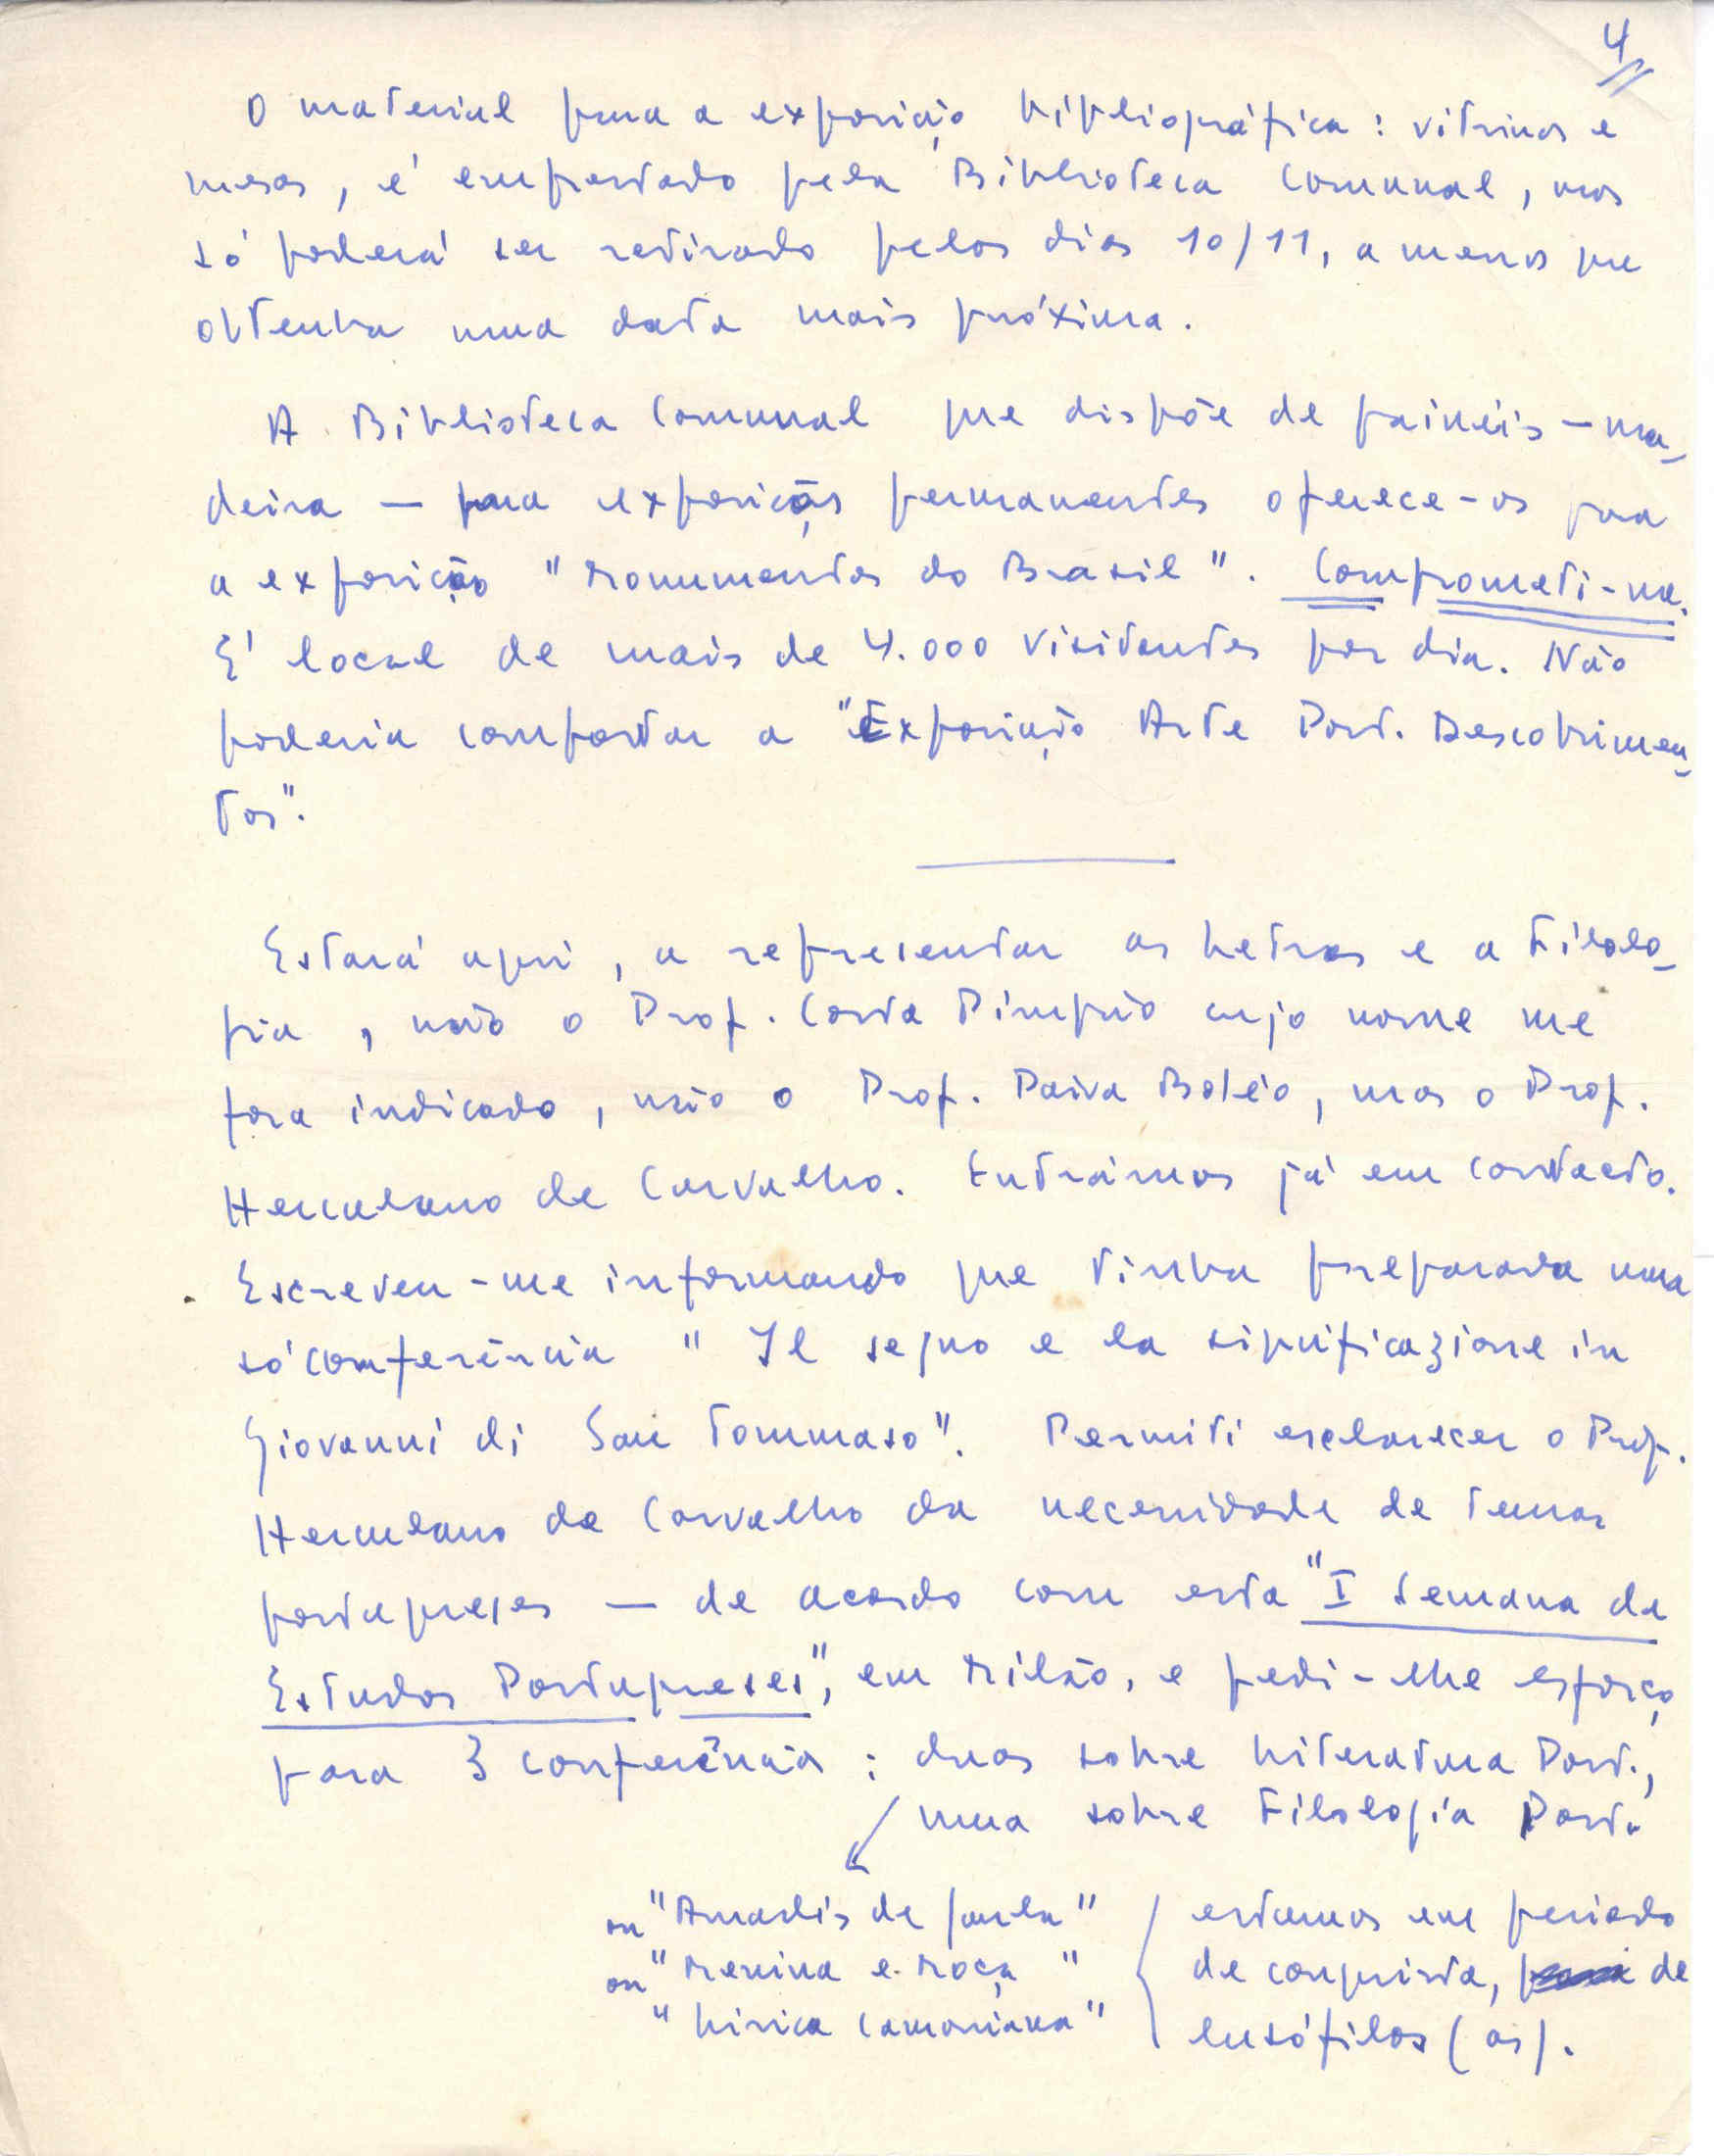 4
O material para a exposição bibliográfica: vitrinas e
mesas, é emprestado pela Biblioteca Comunal, mas
só poderá ser retirado pelos dias 10/11, a menos que
obtenha uma data mais próxima.
A Biblioteca Comunal que dispõe de painéis - ma-
deira - para exposições permanentes oferece-os para
a exposição "Monumentos do Brasil". Comprometi-me.
É local de mais de 4.000 visitantes por dia. Não
poderia comportar a "Exposição Arte Port. Descobrimen-
tos".
Estará aqui, a representar as Letras e a Filolo-
gia, não o Prof. Costa Pimpão cujo nome me
fora indicado, não o Prof. Paiva Boléo, mas o Prof.
Herculano de Carvalho. Entrámos já em contacto.
Escreveu-me informando que tinha preparada uma
só conferência "Il segno e la significazione in
Giovanni di San Tommaso". Permiti esclarecer o Prof.
Herculano de Carvalho da necessidade de temas
portugueses - de acordo com esta "I Semana de
Estudos Portugueses", em Milão, e pedi-lhe esforço
para 3 conferências: duas sobre Literatura Port.,
uma sobre Filologia Port.
ou "Amadis de Gaula"
ou "Menina e Moça"
"Lírica camoniana"
estamos em período
de conquista, de
lusófilos (as).